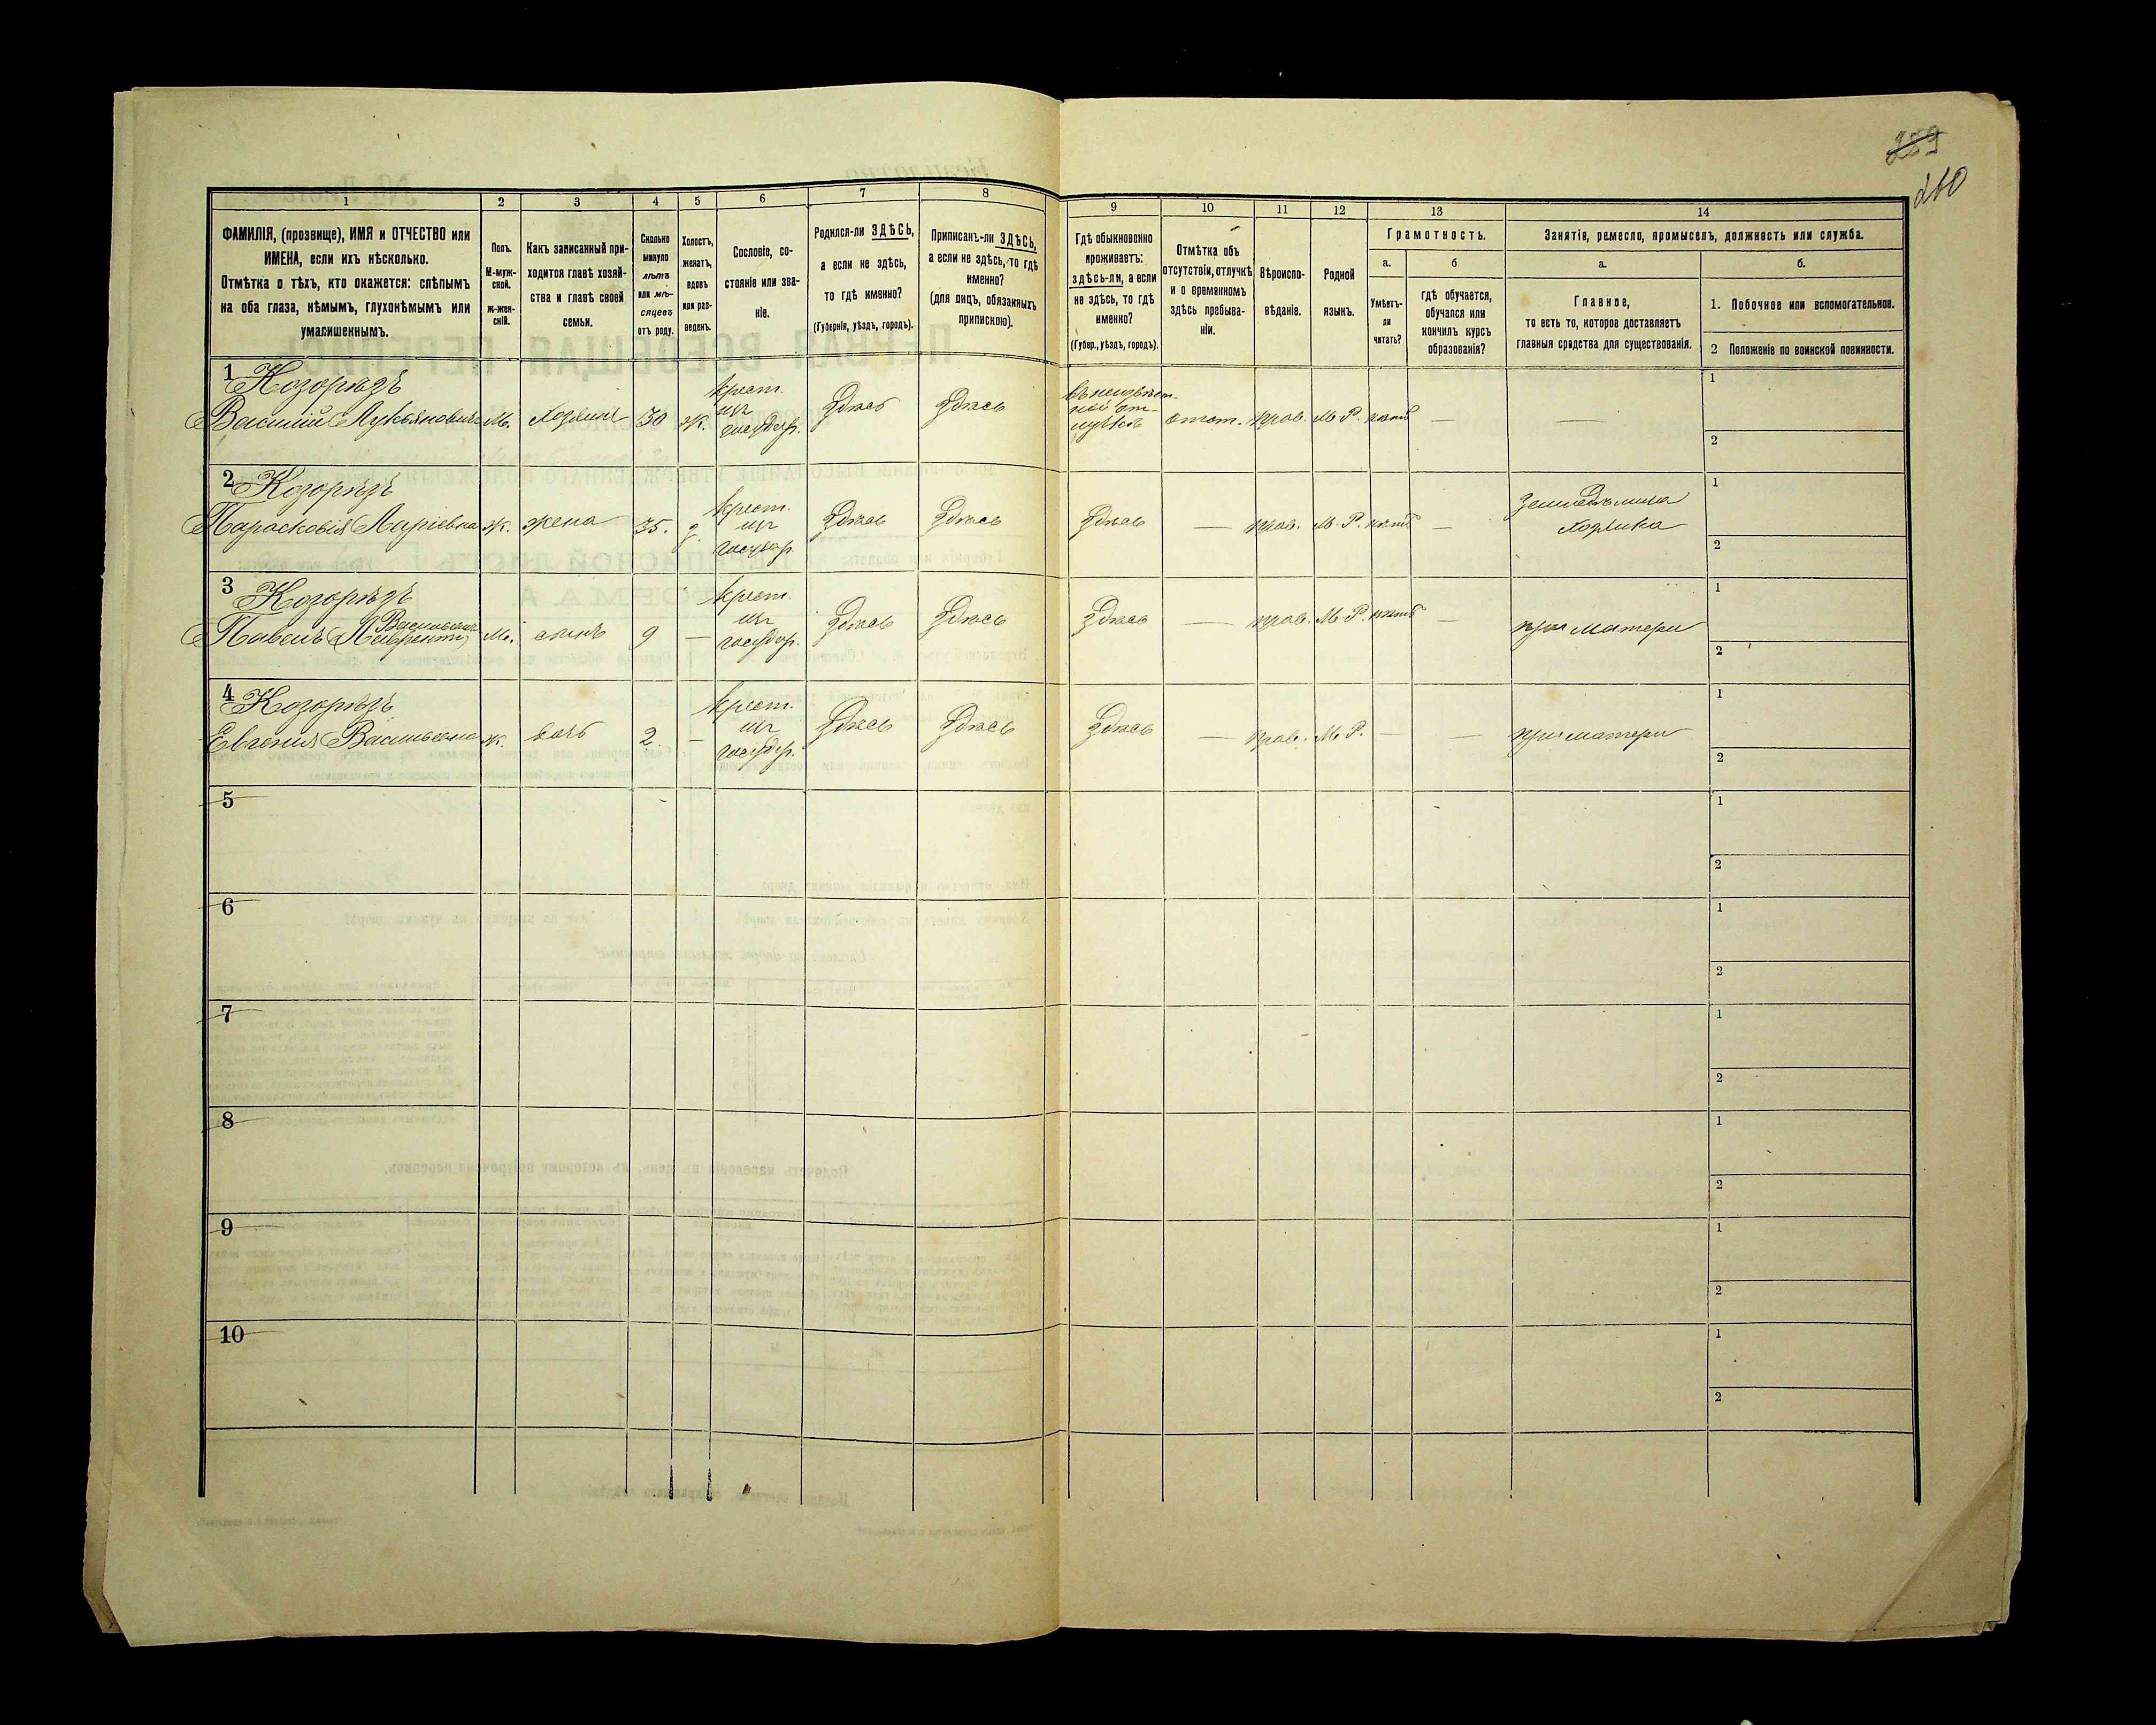 289
260
1
2
3
4
5
6
7
8
9
10
11
12
13
14
ФАМИЛІЯ, (прозвище), ИМЯ и ОТЧЕСТВО или
ИМЕНА, если ихъ нѣсколько.
Отмѣтка о тѣхъ, кто окажется: слѣпымъ
на оба глаза, нѣмымъ, глухонѣмымъ или
умалишеннымъ.
Полъ.
М-муж-
ской.
ж-жен-
скій.
Какъ записанный при-
ходится главѣ хозяй-
ства и главѣ своей
семьи.
Сколько
минуло
лѣтъ
или мѣ-
сяцевъ
отъ роду.
Холостъ,
женатъ,
вдовъ
или раз-
веденъ.
Сословіе, со-
стояніе или зва-
ніе.
Родился-ли ЗДѢСЬ,
а если не здѣсь,
то гдѣ именно?
(Губернія, уѣздъ, городъ).
Приписанъ-ли ЗДѢСЬ,
а если не здѣсь, то гдѣ
именно?
(для лицъ, обязанныхъ
припискою).
Гдѣ обыкновенно
проживаетъ:
здѣсь-ли, а если
не здѣсь, то гдѣ
именно?
(Губер., уѣздъ, городъ).
Отмѣтка объ
отсутствіи, отлучкѣ
и о временномъ
здѣсь пребыва-
ніи.
Вѣроиспо-
вѣданіе.
Родной
языкъ.
Грамотность.
а.
Умѣетъ-
ли
читать?
б
гдѣ обучается,
обучался или
кончилъ курсъ
образованія?
Занятія, ремесло, промыселъ, должность или служба.
а.
Главное,
то есть то, которое доставляетъ
главныя средства для существованія.
б.
1. Побочное или вспомогательное.
2 Положеніе по воинской повинности.
1 Козорѣзъ
Василій Лукьяновичъ
М.
хозяинъ
30
ж.
крест.
из
государ.
Здѣсь
Здѣсь
въ неизвѣст-
ной от-
лучкѣ
отст.
прав.
М. Р.
нѣтъ
—
—
1
2
2 Козорѣзъ
Парасковія
ж.
жена
35.
з.
крест.
из
государ.
Здѣсь
Здѣсь
Здѣсь
—
прав.
М. Р.
нѣтъ
—
хозяйка
1
2
3 Козорѣзъ
Павелъ Васильевъ
М.
сынъ
9
—
крест.
из
государ.
Здѣсь
Здѣсь
Здѣсь
—
прав.
М. Р.
нѣтъ
—
при матери
1
2
4 Козорѣзъ
Евгенія Васильевна
ж.
дочь
2.
—
крест.
из
государ.
Здѣсь
Здѣсь
Здѣсь
—
прав.
М. Р.
—
—
при матери
1
2
5
1
2
6
1
2
7
1
2
8
1
2
9
1
2
10
1
2